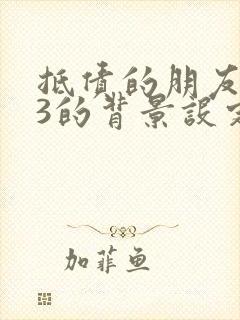 抵债的朋友
3的背景设定
加菲鱼